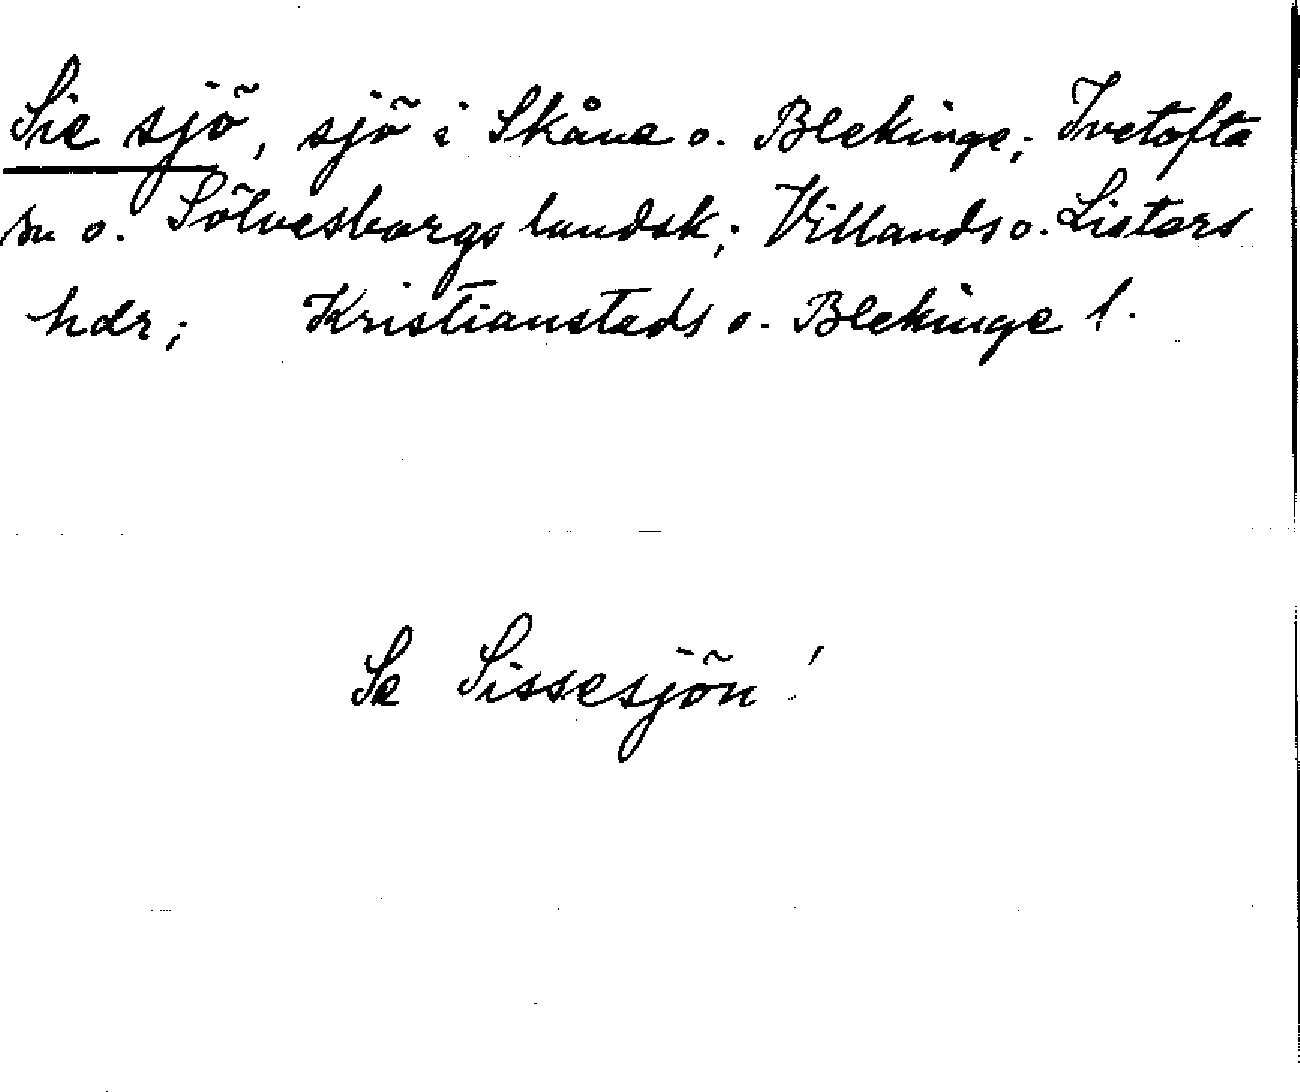 Sie sjö, sjö i Skåne o. Blekinge; Ivetofta
sn o. Sölvesborgs landsk; Villands o. Listers
hdr; Kristianstads o. Blekinge l.
Se Sissesjön!